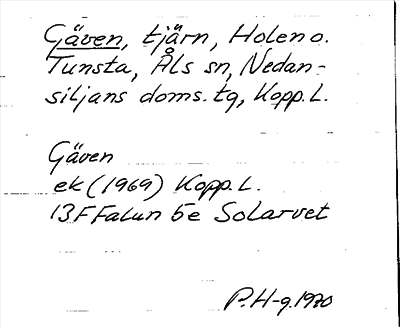 Gäven, tjärn, Holen o.
Tunsta, Åls sn, Nedan-
siljans doms. tg, Kopp. L.
Gäven
ek (1969) Kopp. L.
13F Falun 5e Solarvet
P.H-g. 1970